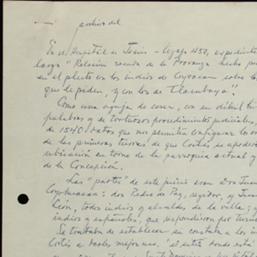 archivo del
En el Hospital de Jesús - Legajo 1452, expediente
largo "Relación sacada de la Provanza hecha por
en el pleito con los indios de Coyoacan sobre l
que le piden, y con los de Tlacubaya".
Como una aguja de coser, con su débil
palabras y en tortuosos procedimientos judiciales,
de 1540 datos que nos permiten configurar
de las primeras tierras de que Cortés se apoderó
ubicación en torno de la parroquia actual y
de la Concepción.
Las "partes" de este juicio eran Don Juan
Coyohuacan: don Pedro de Paz, regidor, y Juan
León, todos indios y alcaldes de la villa;
indios y españoles, que respondieron por turno
Se trataba de establecer en cuanto a los in
Cortés a hacles mejoras, "el sitio donde está